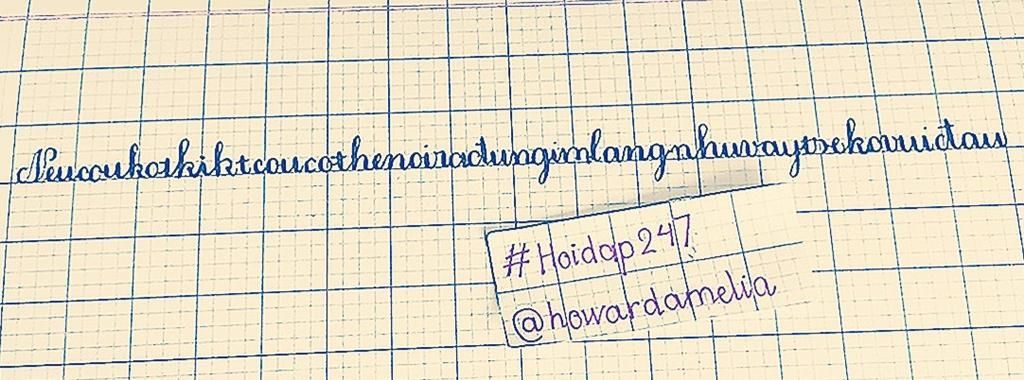 Neucaukothiktcaucothenoiradungimlangnhuvaytoekovuidau
#Hoidap247
@howardamelia